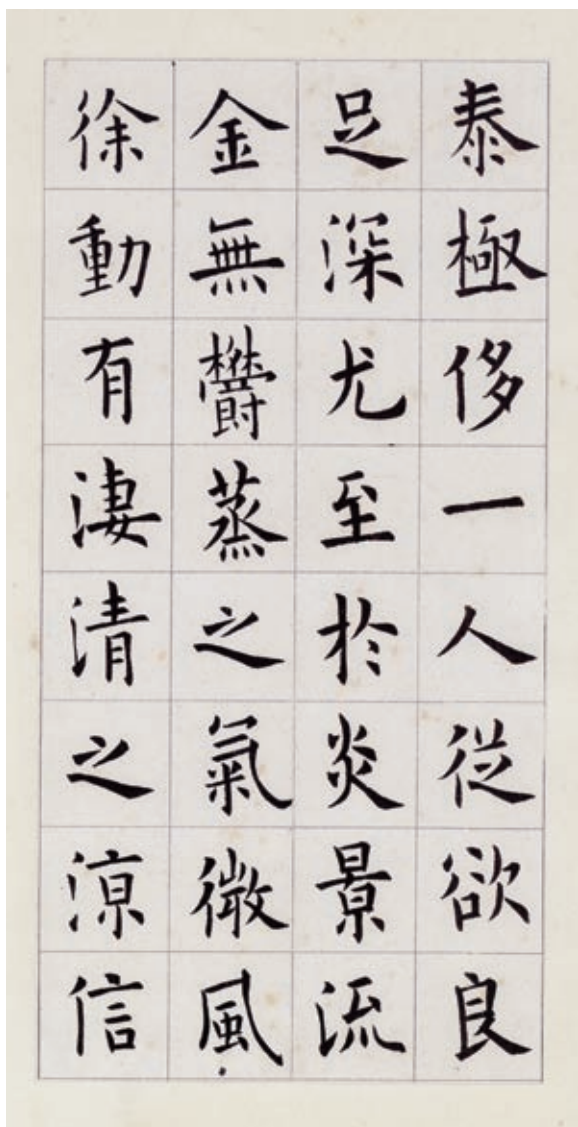 泰極侈一人從欲良
足深尤至於炎景流
金無鬱蒸之氣微風
徐動有淒清之涼信